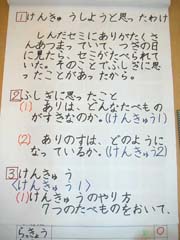 1 けんきゅうしようと思ったわけ
しんだセミにありがたくさ
んあつまっていて、つぎの日
に見たら、セミがたべられて
いた。そのことでふしぎに思
ったことがあったから。
2 ふしぎに思ったこと
(1) ありは、どんなたべもの
がすきなのか。(けんきゅう1)
(2) ありのすは、どのように
なっているか。(けんきゅう2)
3 けんきゅう
<けんきゅう1>
(1) けんきゅうのやり方
7つのたべものをおいて、